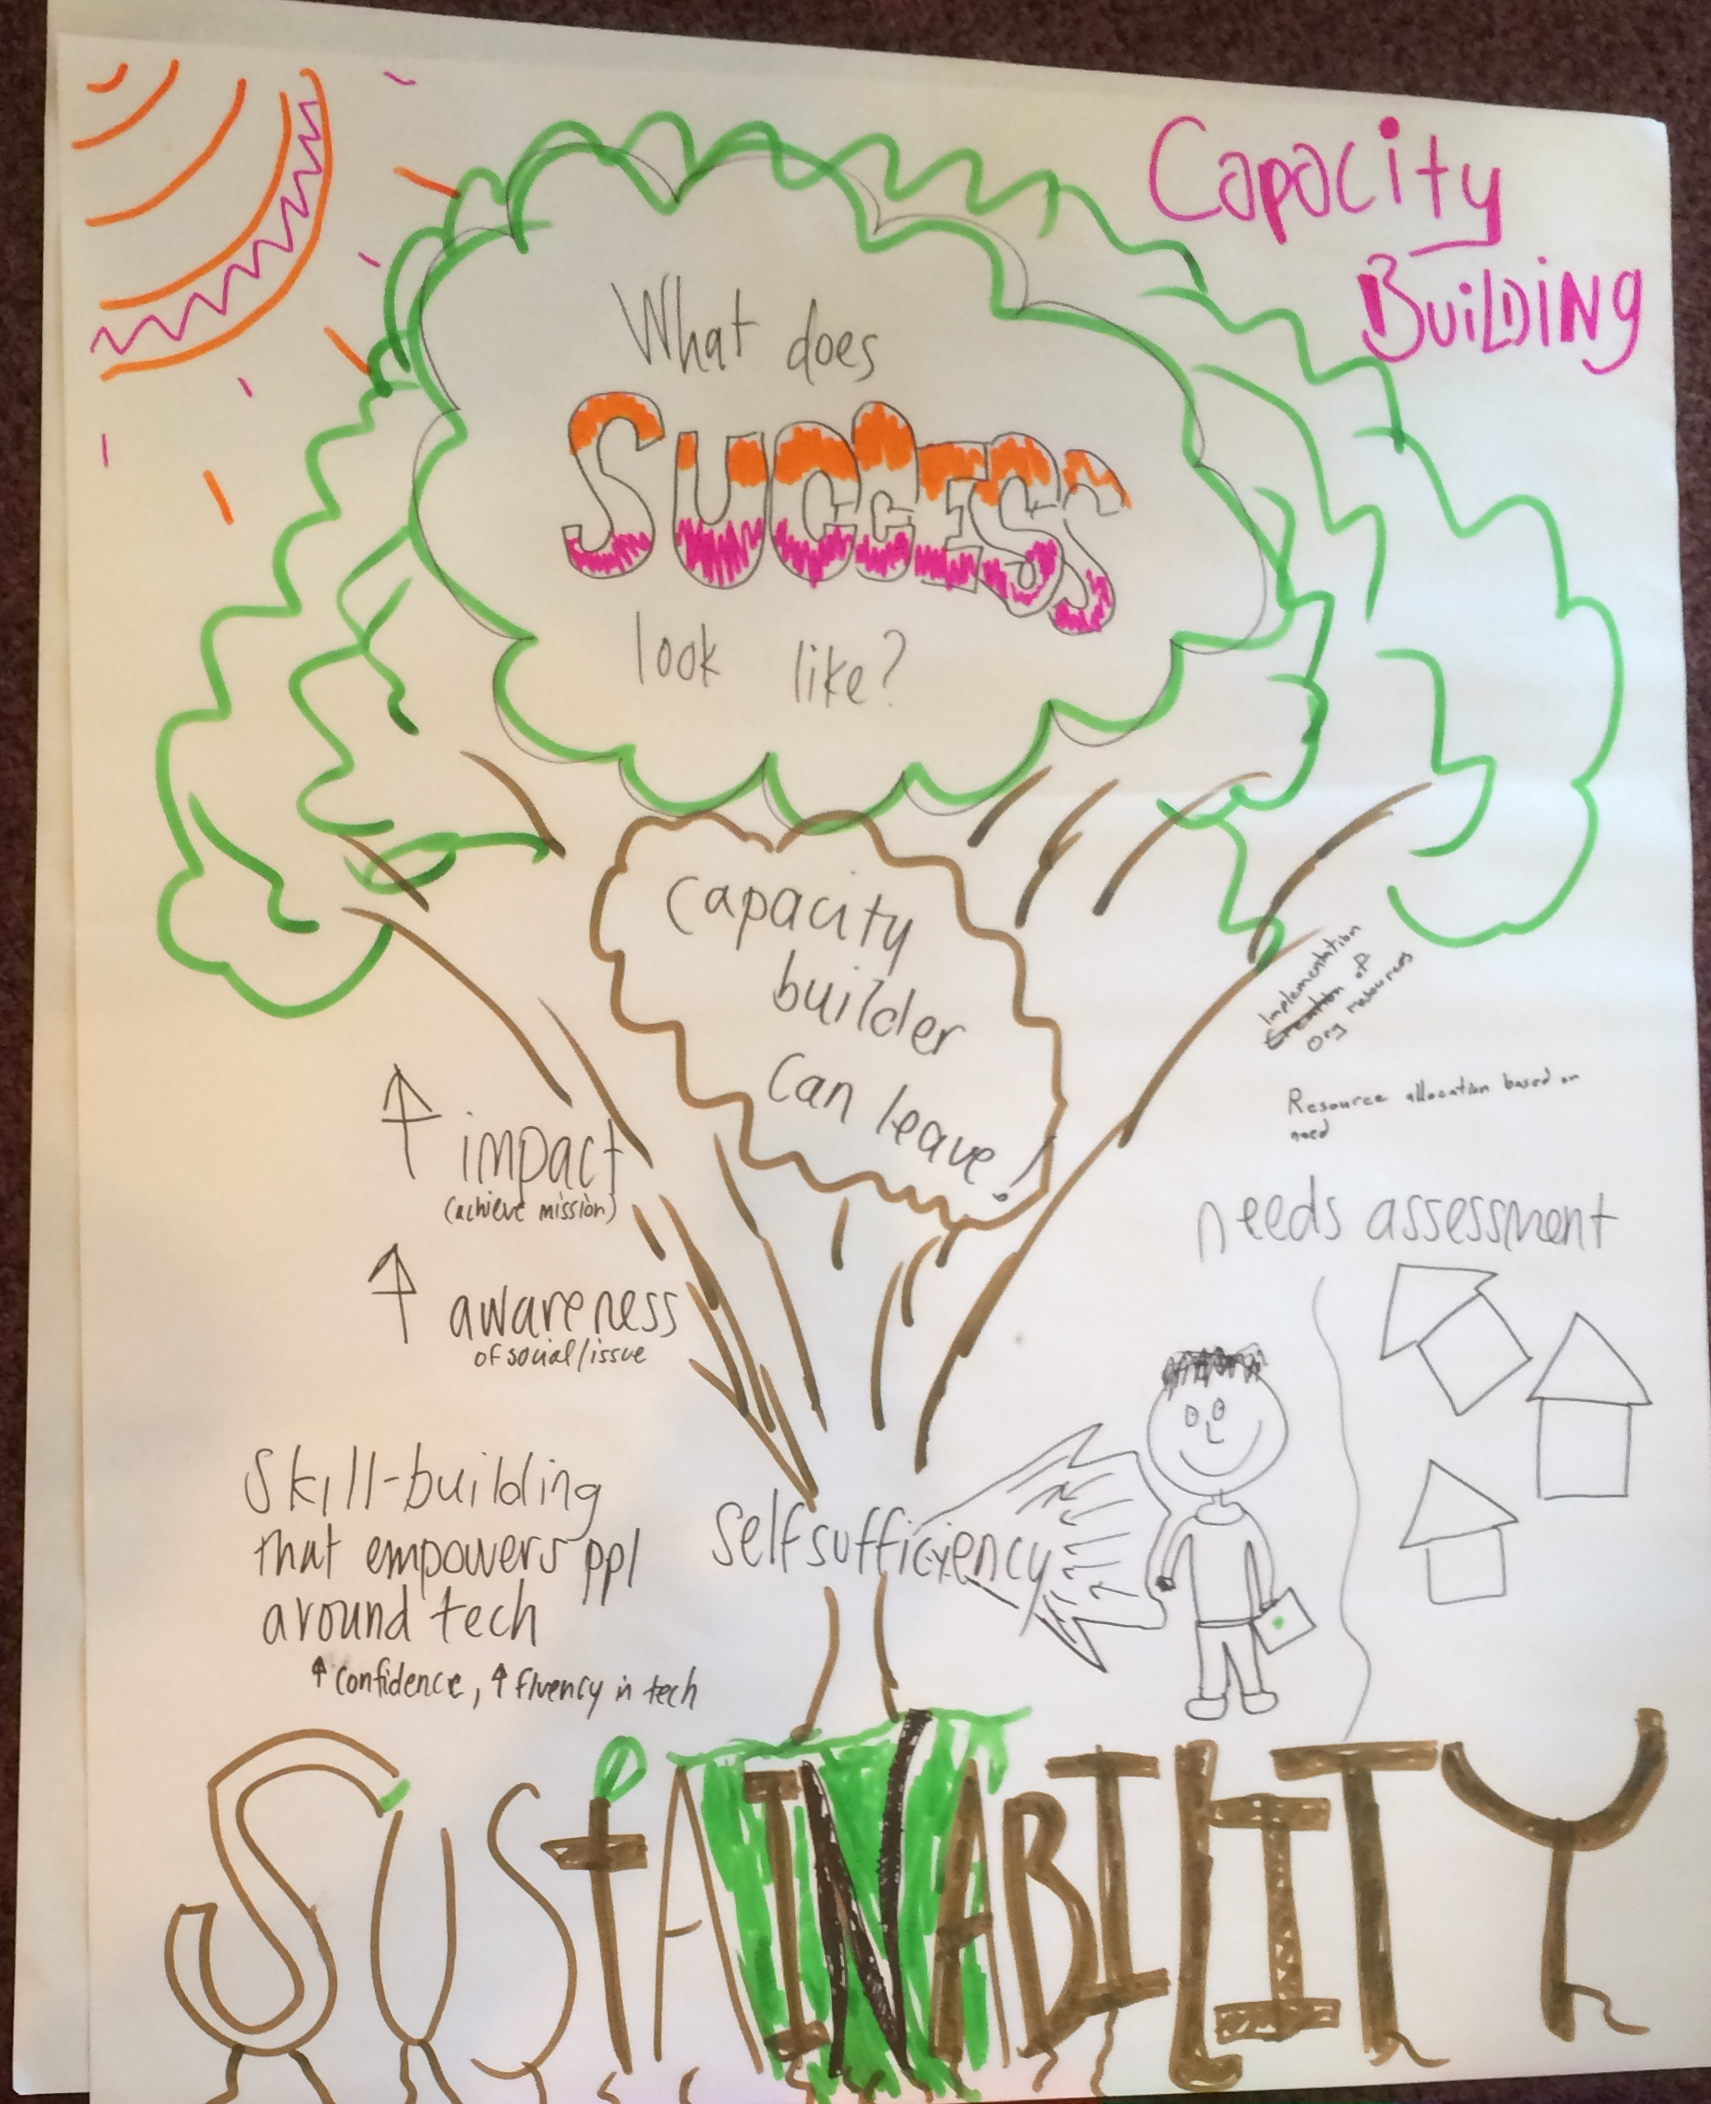 Capacity
BuiLDiNg
What does
SUCCESS
look like?
Capacity
builder
can leave!
Implementation
Creation of
Org resources
Resource allocation based on
need
↑ impact
(achieve mission)
↑ awareness
of social/issue
needs assessment
Skill-building
that empowers ppl
around tech
↑ confidence, ↑ fluency in tech
Selfsufficiency
SUStAINABILITY